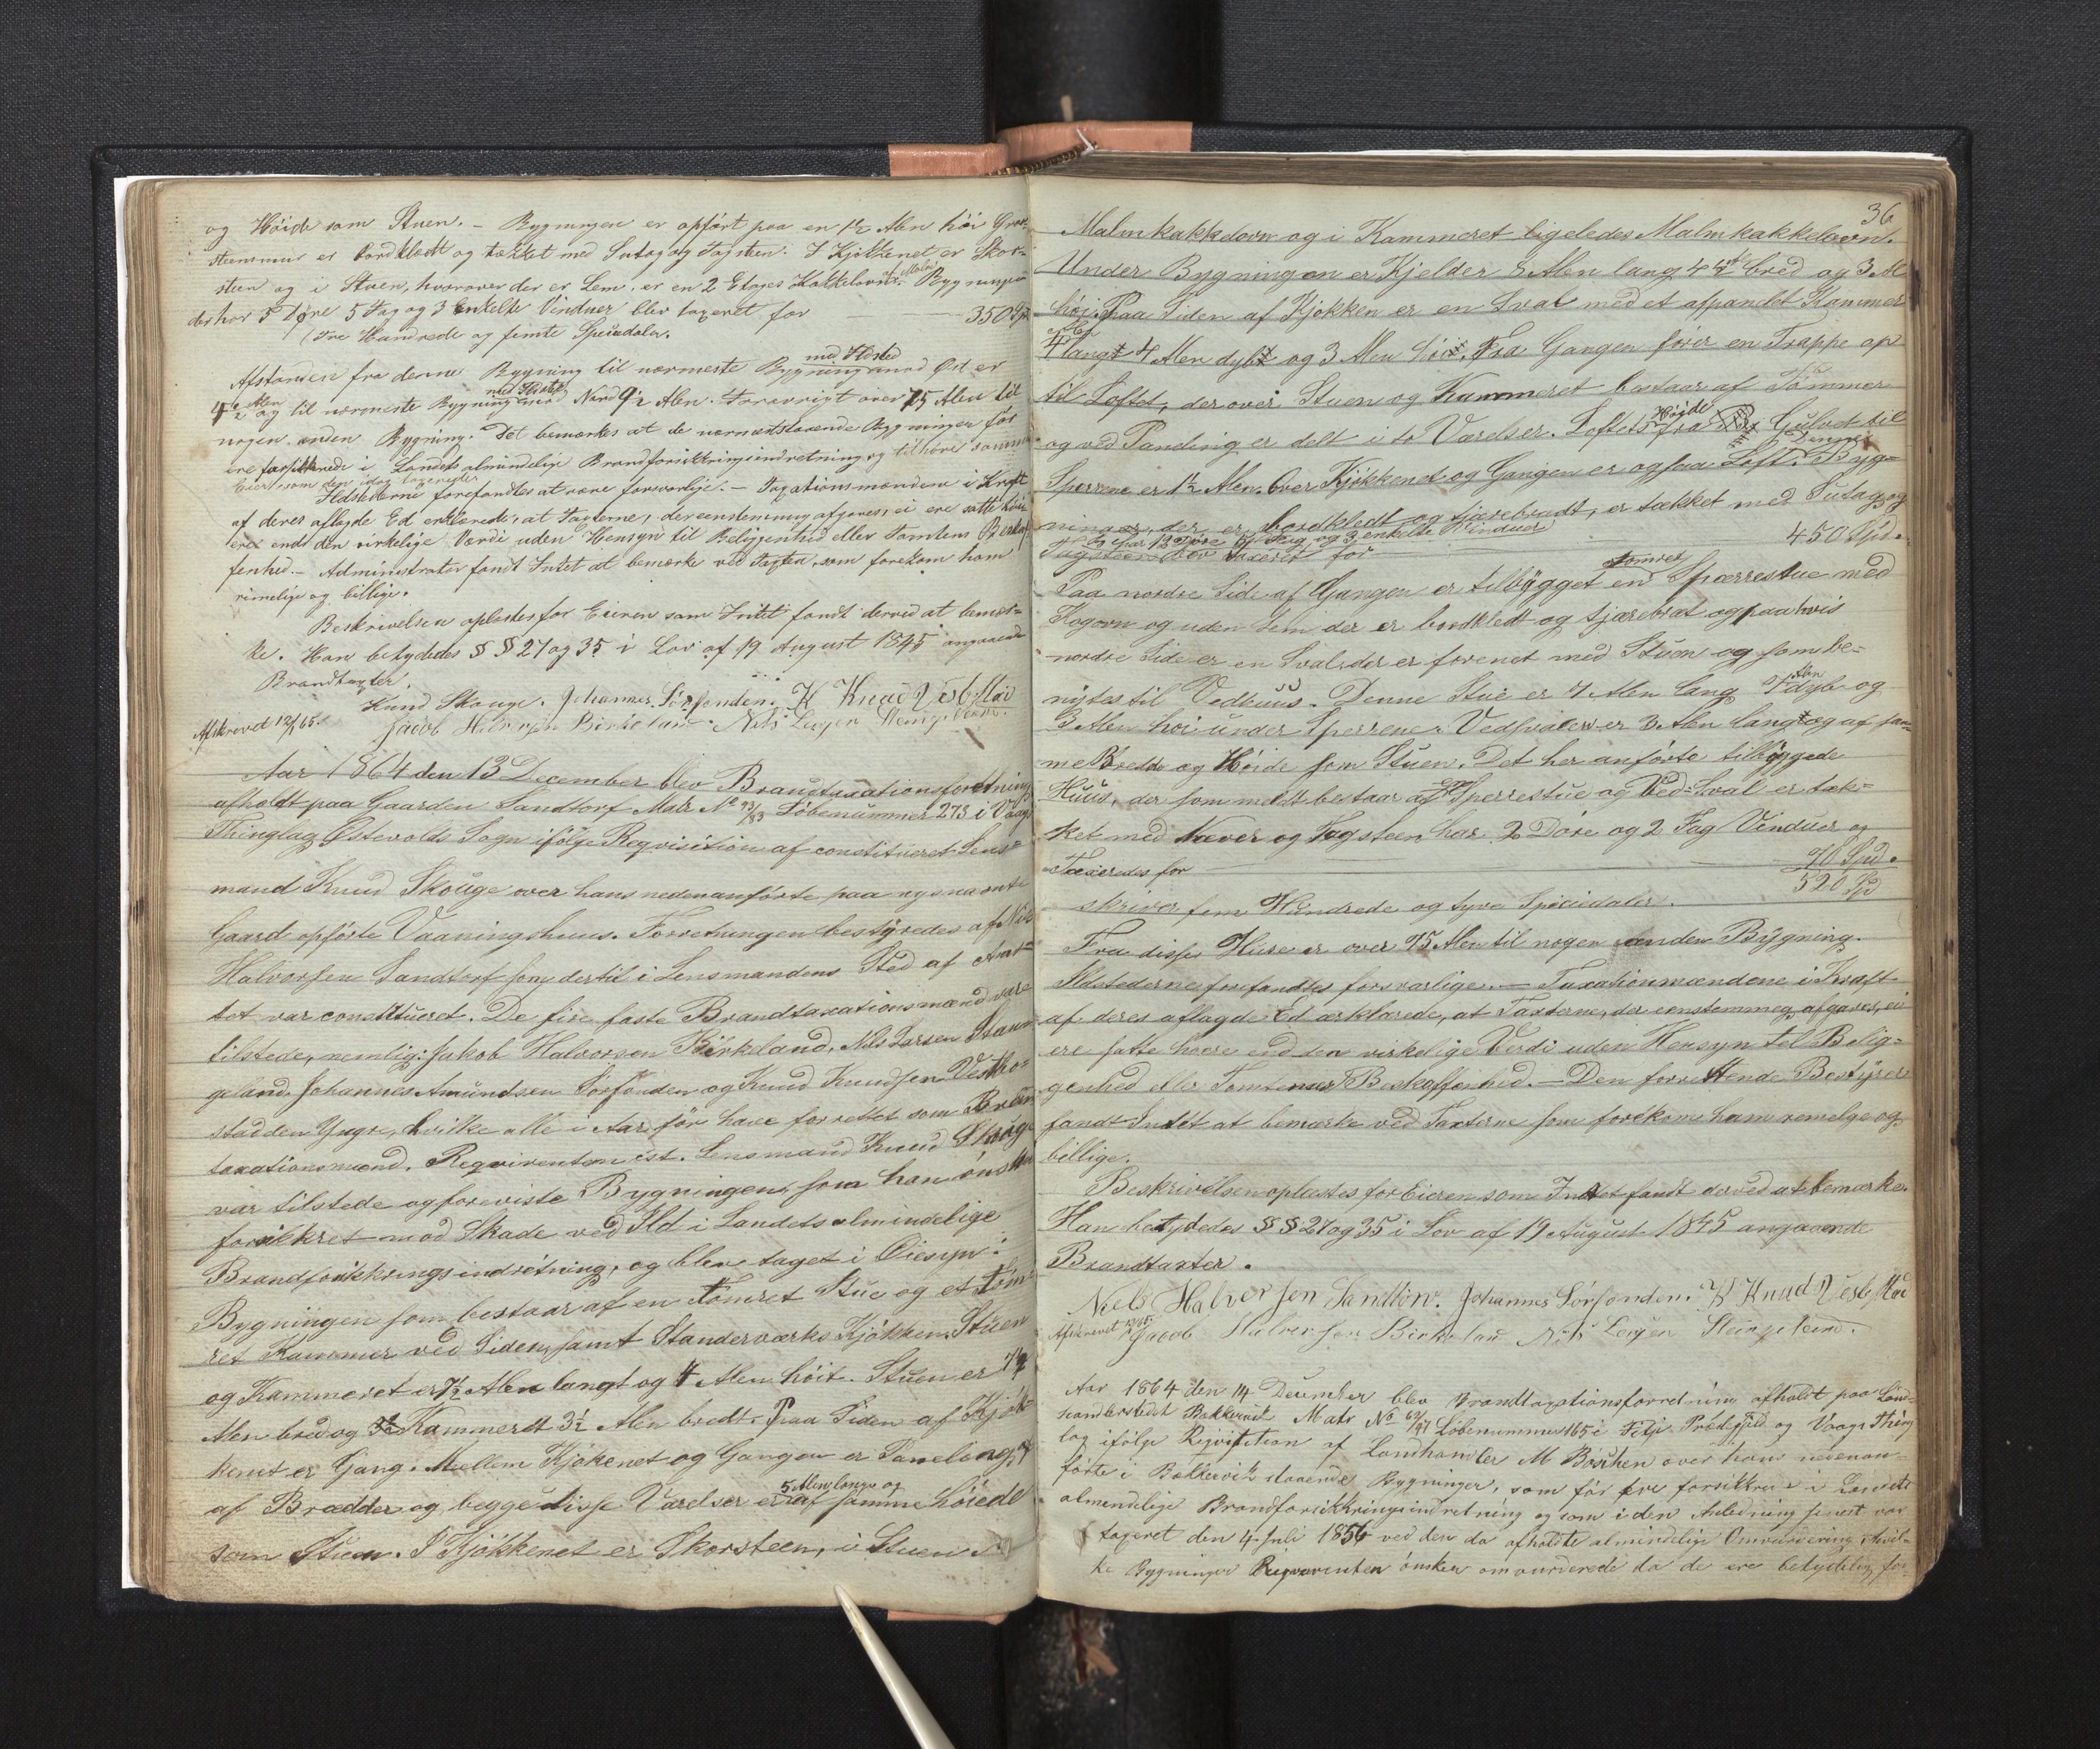 og Høide som Stuen. – Bygningen er opført paa en 1½ Alen høi Graa-
steensmuur er bordklædt og tækket med Sutag og Tagsteen. I Kjøkkenet er Skor-
steen og i Stuen, hvorover der er Lem, er en 2 Etages Kakkelovn af Malm. Bygningen
der har 5 Døre 5 Fag og 3 enkelte Vinduer blev taxeret for — 350 Spd
(Tre Hundrede og femti Speciedaler.
Afstanden fra denne Bygning til nærmeste Bygning med Ildsted mod Øst er
4½ Alen og til nærmeste Bygning med Ildsted mod Nord 9½ Alen. Forøvrigt over 75 Alen til
nogen anden Bygning. Det bemærkes at de nærmestliggende Bygninger før
ere forsikkrede i Landets almindelige Brandforsikkringsindretning og tilhøre samme
Eier som den idag taxerede.
Ildstederne forefandtes at være forsvarlige. – Taxationsmændene i Kraft
af deres aflagde Ed erklærede, at Taxterne, der eenstemmig afgaves, ei ere satte høi-
ere end den virkelige Værdi uden Hensyn til Beliggenhed eller Tomtens Beskaf-
fenhed. – Administrator fandt Intet at bemærke ved Taxten, som forekom ham
rimelige og billige.
Beskrivelsen oplæstes for Eieren som Intet fandt derved at bemær-
ke. Han betydedes §§ 27 og 35 i Lov af 19 August 1845 angaaende
Brandtaxter.
Knud Skouge. Johannes Sørfonden. K Knud VestHad
Afskrevet 12/1 65. Jacob Halvorsen Birkeland. Nils Larsen
Aar 1864 den 13 December blev Brandtaxationsforretning
afholdt paa Gaarden Sandtorf Matr No 73/83 Løbenummer 273 i Vaags
Thinglag Østevolds Sogn ifølge Reqvisition af constitueret Lens-
mand Knud Skouge over hans nedenanførte paa nysnævnte
Gaard opførte Vaaningshuus. Forretningen bestyredes af Niels
Halvorsen Sandtorf som dertil i Lensmandens Sted af Amt-
tet var constitueret. De fire faste Brandtaxationsmænd vare
tilstede, nemlig: Jakob Halvorsen Birkeland, Nils Larsen Staun-
geland, Johannes Amundsen Sørfonden og Knud Knudsen Vestho-
stad den Yngre, hvilke alle i Aar før have forrettet som Brand-
taxationsmænd. Reqvirenten cst. Lensmand Knud Skouge
var tilstede og foreviste Bygningen, som han ønsker
forsikkret mod Skade ved Ild i Landets almindelige
Brandforsikkringsindretning, og blev taget i Øiesyn:
Bygningen som bestaar af en Tømret Stue og et tøm-
ret Kammer ved Siden, samt Standerværks Kjøkken. Stuen
og Kammeret er 7½ Alen langt og 4 Alen høit. Stuen er 7½
Alen bred og Kammeret 3½ Alen bredt. Paa Siden af Kjøk-
kenet er Gang. Mellem Kjøkenet og Gangen er Paneling
af Brædder og begge disse Værelser er 5 Alen lange og af samme Høiede
som Stuen. I Kjøkkenet er Skorsteen, i Stuen
36
Malmkakkelovn og i Kammeret ligeledes Malmkakkelovn.
Under Bygningen er Kjelder 8 Alen lang 4½ Al bred og 3 Al
høi. Paa Siden af Kjøkken er en Sval med et afpandet Kammer
4 Al langt 4 Alen dybt og 3 Alen høi. Fra Gangen fører en Trappe op
til Loftet, der over Stuen og Kammeret bestaar af Tømmer
og ved Pandeing er delt i to Værelser. Loftets Høide fra Gulvet til
Sperrene er 1½ Alen. Over Kjøkkenet og Gangen er ogsaa Loft. Denne Byg-
ninger, der er bordkledt og tjærebradt, er tækket med Sutag og
Tagsteen har 12 Døre 6 Fag og 3 enkelte Vinduer blev taxeret for — 450 Spd.
Paa nordre Side af Gangen er tilbygget en tømret Sperrestue med
Kogovn og uden Lem der er bordkledt og tjærebrat og paa hvis
nordre Side er en Sval, der er forenet med Stuen og som be-
nyttes til Vedhuus. Denne Stue er 7 Alen lang 7 Alen dyb og
3 Alen høi under Sperrene. Vedsvalen er 3 Alen lang og af sam-
me Bredde og Høide som Stuen. Det her anførte tilbyggede
Huus, der som meldt bestaar af en Sperrestue og Ved-Sval er tæk-
ket med Næver og Tagsteen har 2 Døre og 2 Fag Vinduer og
Taxeredes for — 70 Spd.
520 Spd
skriver fem Hundrede og tyve Speciedaler.
Fra disse Huse er over 75 Alen til nogen anden Bygning.
Ildstederne forefandtes forsvarlige. — Taxationsmændene i Kraft
af deres aflagde Ed erklærede, at Taxterne, der eenstemmig afgaves, ei
ere satte høiere end den virkelige Verdi uden Hensyn til Belig-
genhed eller Tomternes Beskaffenhed. — Den forrettende Bestyrer
fandt Intet at bemærke ved Taxterne som forekom ham remelige og
billige.
Beskrivelsen oplæstes for Eieren som Intet fandt derved at bemærke.
Han betydedes §§ 27 og 35 i Lov af 19 August 1845 angaaende
Brandtaxter.
Niels Halversen Santtorv. Johannes Sørfonden. K Knud VestHad
Afskrevet Jacob Halversen Birkeland Nils Larsen
Aar 1864 den 14 December blev Brandtaxationsforretning afholdt paa Land-
handlerstedet Bakkervik Matr No 69/91 Løbenummer 165 i Fitje Præstegjeld og Vaags Thing
lag ifølge Reqvisition af Landhandler M Bøschen over hans nedenan-
førte i Bakkervik staaende Bygninger, som før ere forsikkrede i Landets
almendelige Brandforsikkringsindretning og som i den Anledning senest var
taxeret den 4 Juli 1856 ved den da afholdte almindelige Omvurdering, hvil-
ke Bygninger Reqvirenten ønsker omvurderede da de ere betydelig for-